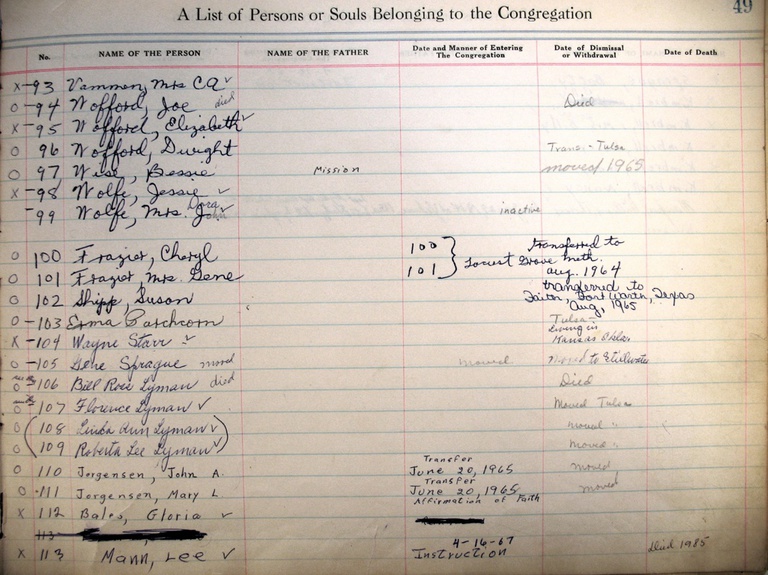 49
A List of Persons or Souls Belonging to the Congregation
No. NAME OF THE PERSON NAME OF THE FATHER Date and Manner of Entering The Congregation Date of Dismissal or Withdrawal Date of Death
X-93 Vammen, Mrs CA ✓
O-94 Wofford, Joe died Died
X-95 Wofford, Elizabeth ✓
O 96 Wofford, Dwight Trans.- Tulsa
O 97 Wise, Bessie Mission moved 1965
X-98 Wolfe, Jessie ✓
-99 Wolfe, Mrs. Dora ✓ inactive
O 100 Frazier, Cheryl 100 transferred to
O 101 Frazier Mrs. Gene 101 } Locust Grove Meth. Aug. 1964
O 102 Shipp, Susan tranferred to Faith, Fort Worth, Texas Aug, 1965
O-103 Erma Parchcorn Tulsa-
X-104 Wayne Starr ✓ Living in Kansas Okla.
O-105 Gene Sprague moved moved Moved to Stillwater
O-106 Bill Rose Lyman died Died
O-107 Florence Lyman ✓ Moved Tulsa
O (108 Linda Ann Lyman ✓) moved "
O (109 Roberta Lee Lyman ✓) Moved "
O 110 Jorgensen, John A. Transfer June 20, 1965 moved
O-111 Jorgensen, Mary L Transfer June 20, 1965 moved
X 112 Bales, Gloria ✓ Affirmation of Faith
113
X 113 Mann, Lee ✓ 4-16-67 Instruction Died 1985